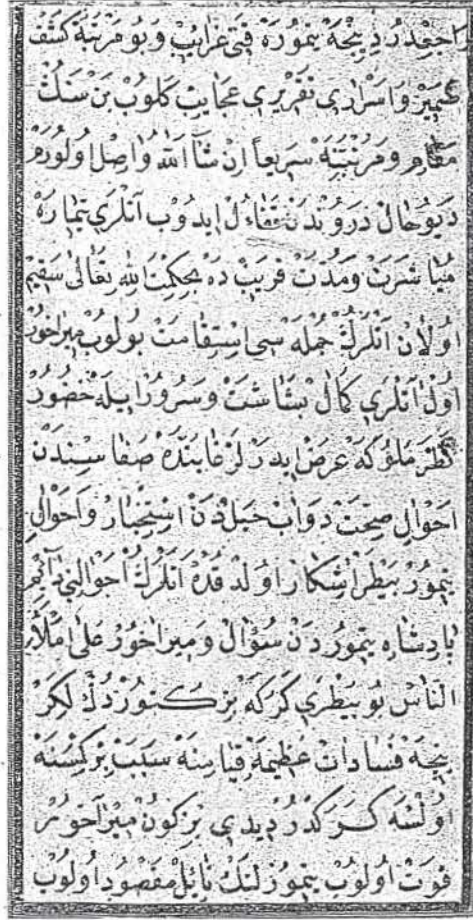 احقدر دیجه تیمور قتی غرایب و بو مرتبه کشف
ضمیر و اسراری تقریری عجایب کلوب بن سنك
مقام و مرتبته سریعاً ان شاء الله واصل اولورم
دیو حال دروندن تفاءل ایدوب آتلری تیماره
مباشرت و مدت قریب ده بحکمت الله تعالی سقیم
اولان آتلرك جمله سی استقامت بولوب میراخور
اول آتلری کمال بشاشت و سرور ایله حضور
ملوکه عرض ایدرلر غایتده صفا سندن
احوال صحت دواب خیلدن استخبار و احوال
تیمور بیطر اشکار اولدقده آتلرك احوالنی دآئم
پادشاه تیموردن سؤال و میراخور علی املاء
الناس بو بیطری کرکه بز کتوردك لکن
نیجه فسادات عظیمه قیامنه سبب بر کمسنه
اولسه کرکدر دیدی بر کون میراخور
فوت اولوب تیمور لنك نایل مقصود اولوب